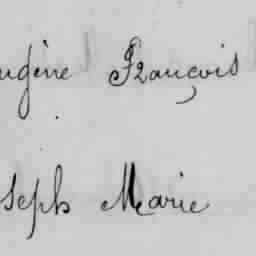 ugène François
seph Marie